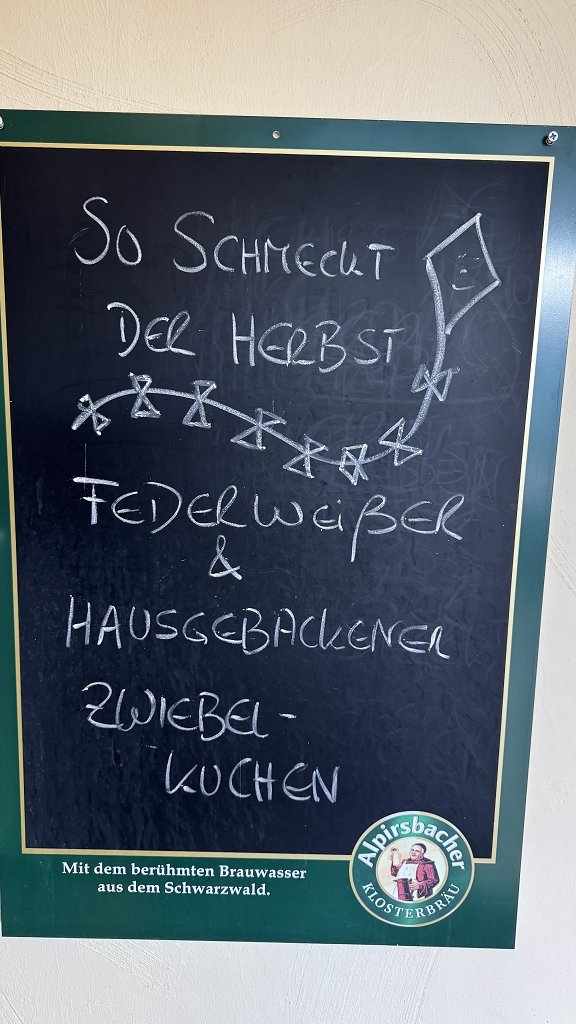 So SCHMECKT
DER HERBST
FEDERWEIßER
&
HAUSGEBACKENER
ZWIEBEL-
KUCHEN
Mit dem berühmten Brauwasser
aus dem Schwarzwald.
Alpirsbacher
KLOSTERBRÄU